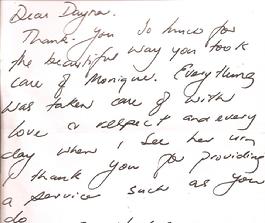 Dear Dayna.
Thank you so much for
the beautiful way you took
care of Monique. Everything
was taken care of with
love & respect and every
day when I see her urn
I thank you for providing
a service such as you
do